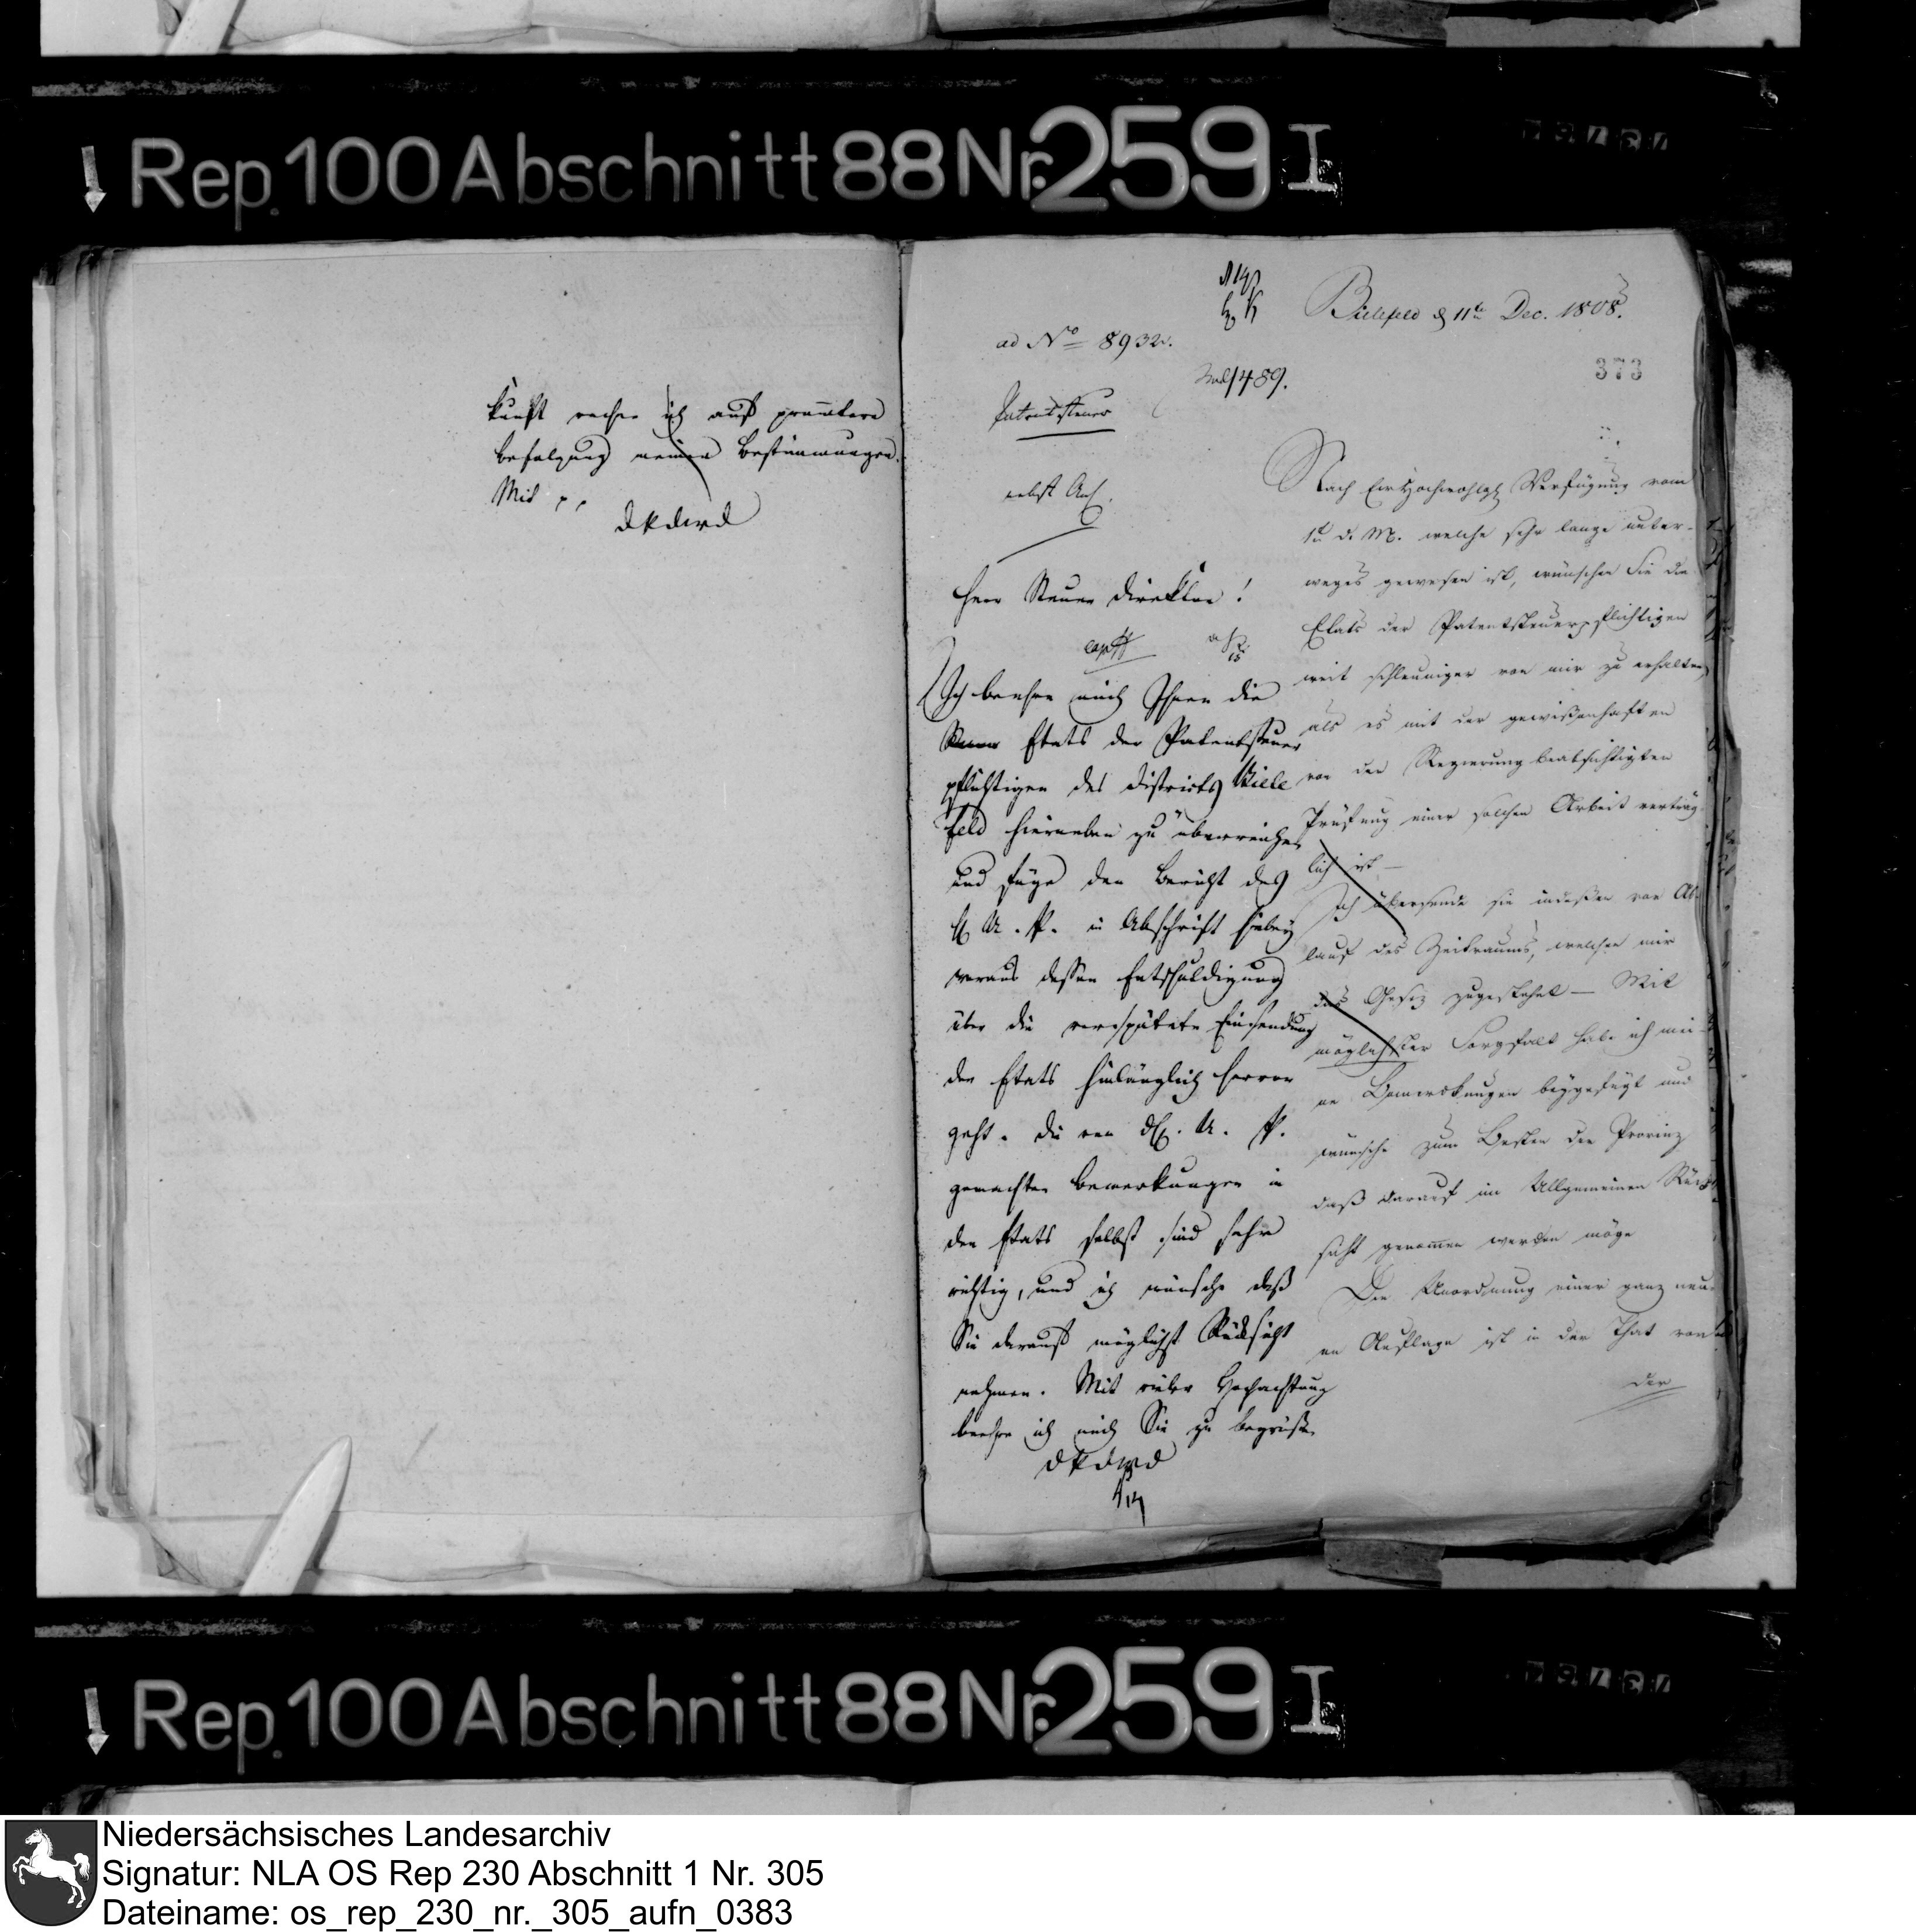 Rep. 100 Abschnitt 88 Nr. 259 I
kunft rechne ich auf promtere
befolgung meiner Bestimmungen.
Mit
DPdWD
Bielefeld d 11ten Dec. 1808.
ad No 8932.
1489.
373
Patentsteuer
nebst Anl.
Herr Steuer Direktor!
Ich beehre mich Ihnen die
Etats der Patentsteuer
pflichtigen des Districts Biele
feld hierneben zu überreichen
und füge den Bericht des
H U. P. in Abschrift hiebey
woraus dessen Entschuldigung
über die verspätete Einsendung
der Etats hinlänglich hervor
geht. Die von H. U. P.
gemachten Bemerkungen in
den Etats selbst sind sehr
richtig, und ich wünsche daß
Sie darauf möglichst Rücksicht
nehmen. Mit vieler Hochachtung
beehre ich mich Sie zu begrüßen
DPdWD
Nach Ew Hochwohlgb Verfügung vom
1t d. M. welche sehr lange unter-
weges gewesen ist, wünschen Sie die
Etats der Patentsteuerpflichtigen
weit schleuniger von mir zu erhalten,
als es mit der gewißenhaften
von der Regierung beabsichtigten
Prüfung einer solchen Arbeit verträg
lich ist —
Ich übersende sie indeßen vor Ab-
lauf des Zeitraums, welchen mir
das Gesez zugestehet — Mit
möglichster Sorgfalt habe ich mei-
ne Bemerkungen beygefügt und
wünsche zum Besten der Provinz
daß darauf im Allgemeinen Rück
sicht genommen werden möge
Die Anordnung einer ganz neu-
en Auflage ist in der That von
der
Rep. 100 Abschnitt 88 Nr. 259 I
Niedersächsisches Landesarchiv
Signatur: NLA OS Rep 230 Abschnitt 1 Nr. 305
Dateiname: os_rep_230_nr._305_aufn_0383